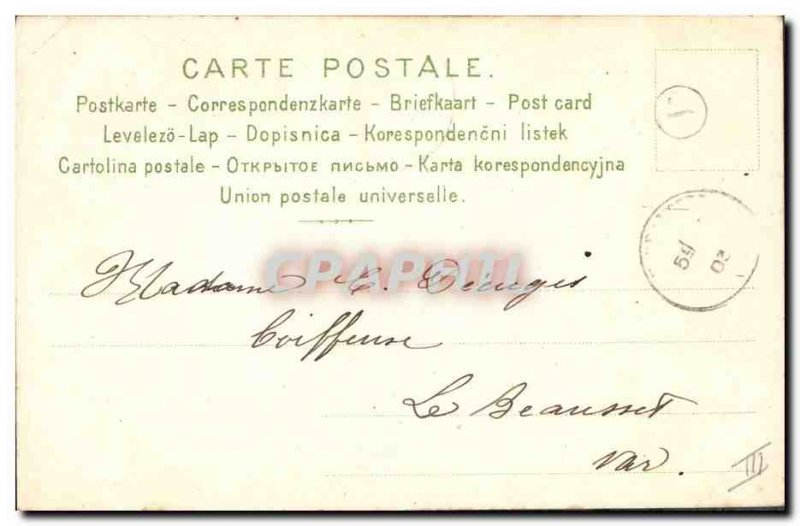 CARTE POSTALE.
Postkarte - Correspondenzkarte - Briefkaart - Post card
Levelező-Lap - Dopisnica - Korespondenčni listek
Cartolina postale - Открытое письмо - Karta korespondencyjna
Union postale universelle.
CPAPHIL
Madame C.
Coiffeuse
Le Beausset
Var.
III